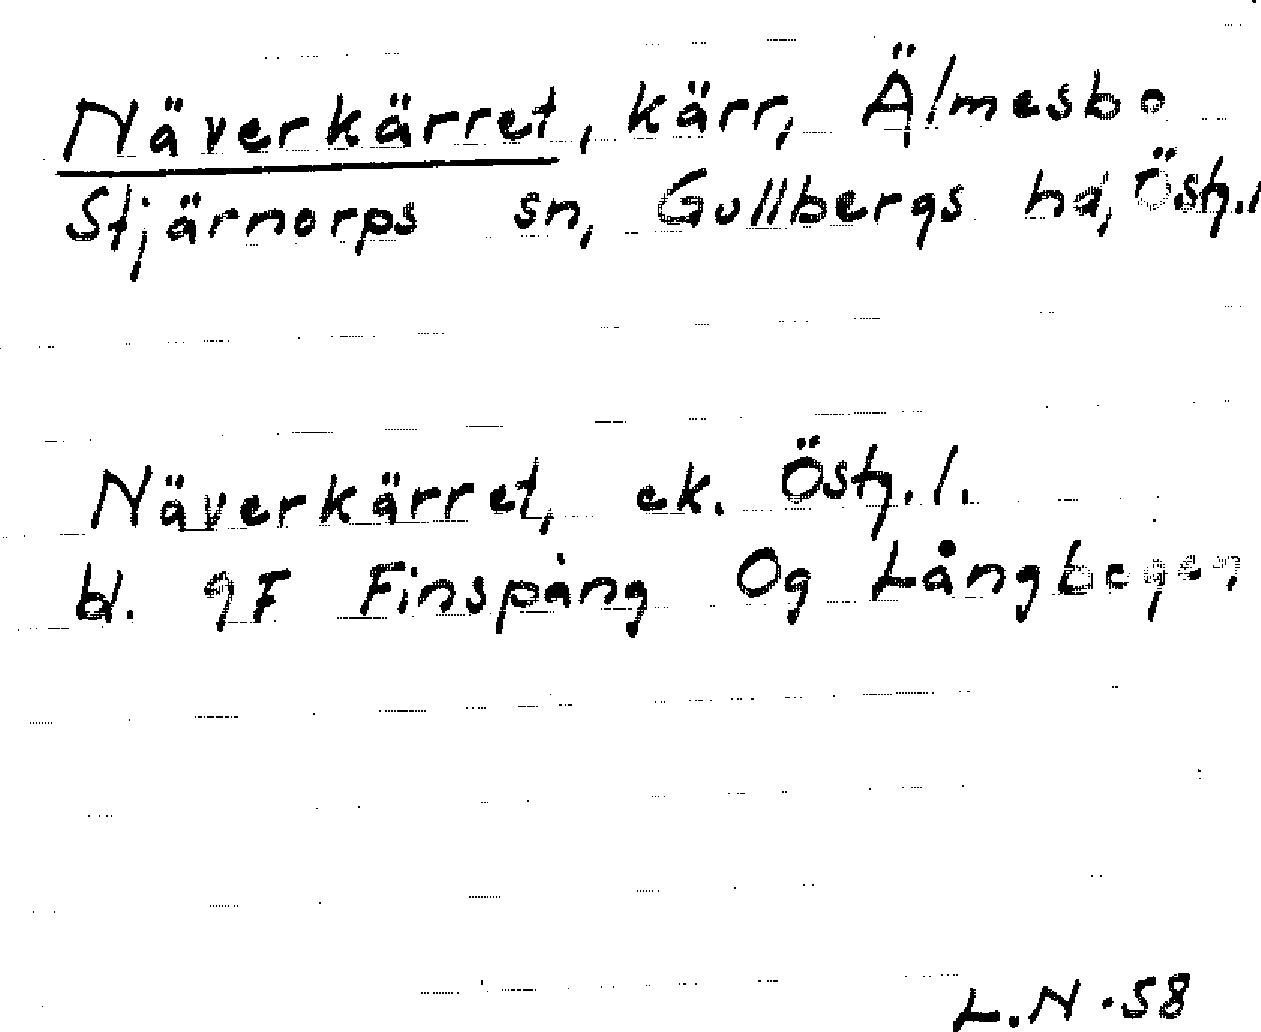 Näverkärret, kärr, Älmesbo
Stjärnorps sn, Gullbergs hd, Östg.l
Näverkärret, ek. Östg.l.
bl. 9F Finspång Og Långbogen
L.N.58